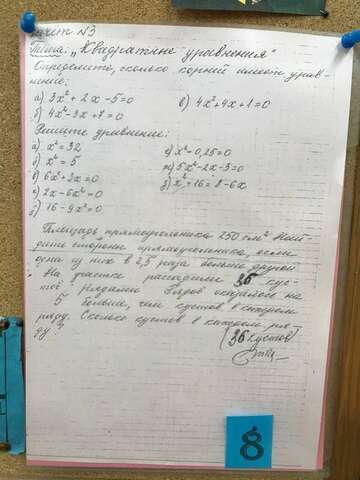 Зачет №3
Тема: „Квадратные уравнения"
Определите, сколько корней имеет урав-
нение:
а) 3x²+2x-5=0
в) 4x²+4x+1=0
б) 4x²-3x+7=0
Решите уравнение:
а) x²=32
е) x²-0,25=0
б) x²=5
ж) 5x²-2x-3=0
в) 6x²+3x=0
з) x²+16=8-6x
г) 2x-6x²=0
д) 16-9x²=0
Площадь прямоугольника 250 см². Най-
дите стороны прямоугольника, если
одна из них в 2,5 раза больше другой
На участке рассадили 36 кус-
тов рядами Рядов оказалось на
5 больше, чем кустов в каждом
ряду. Сколько кустов в каждом ря-
ду?
(36 кустов)
8